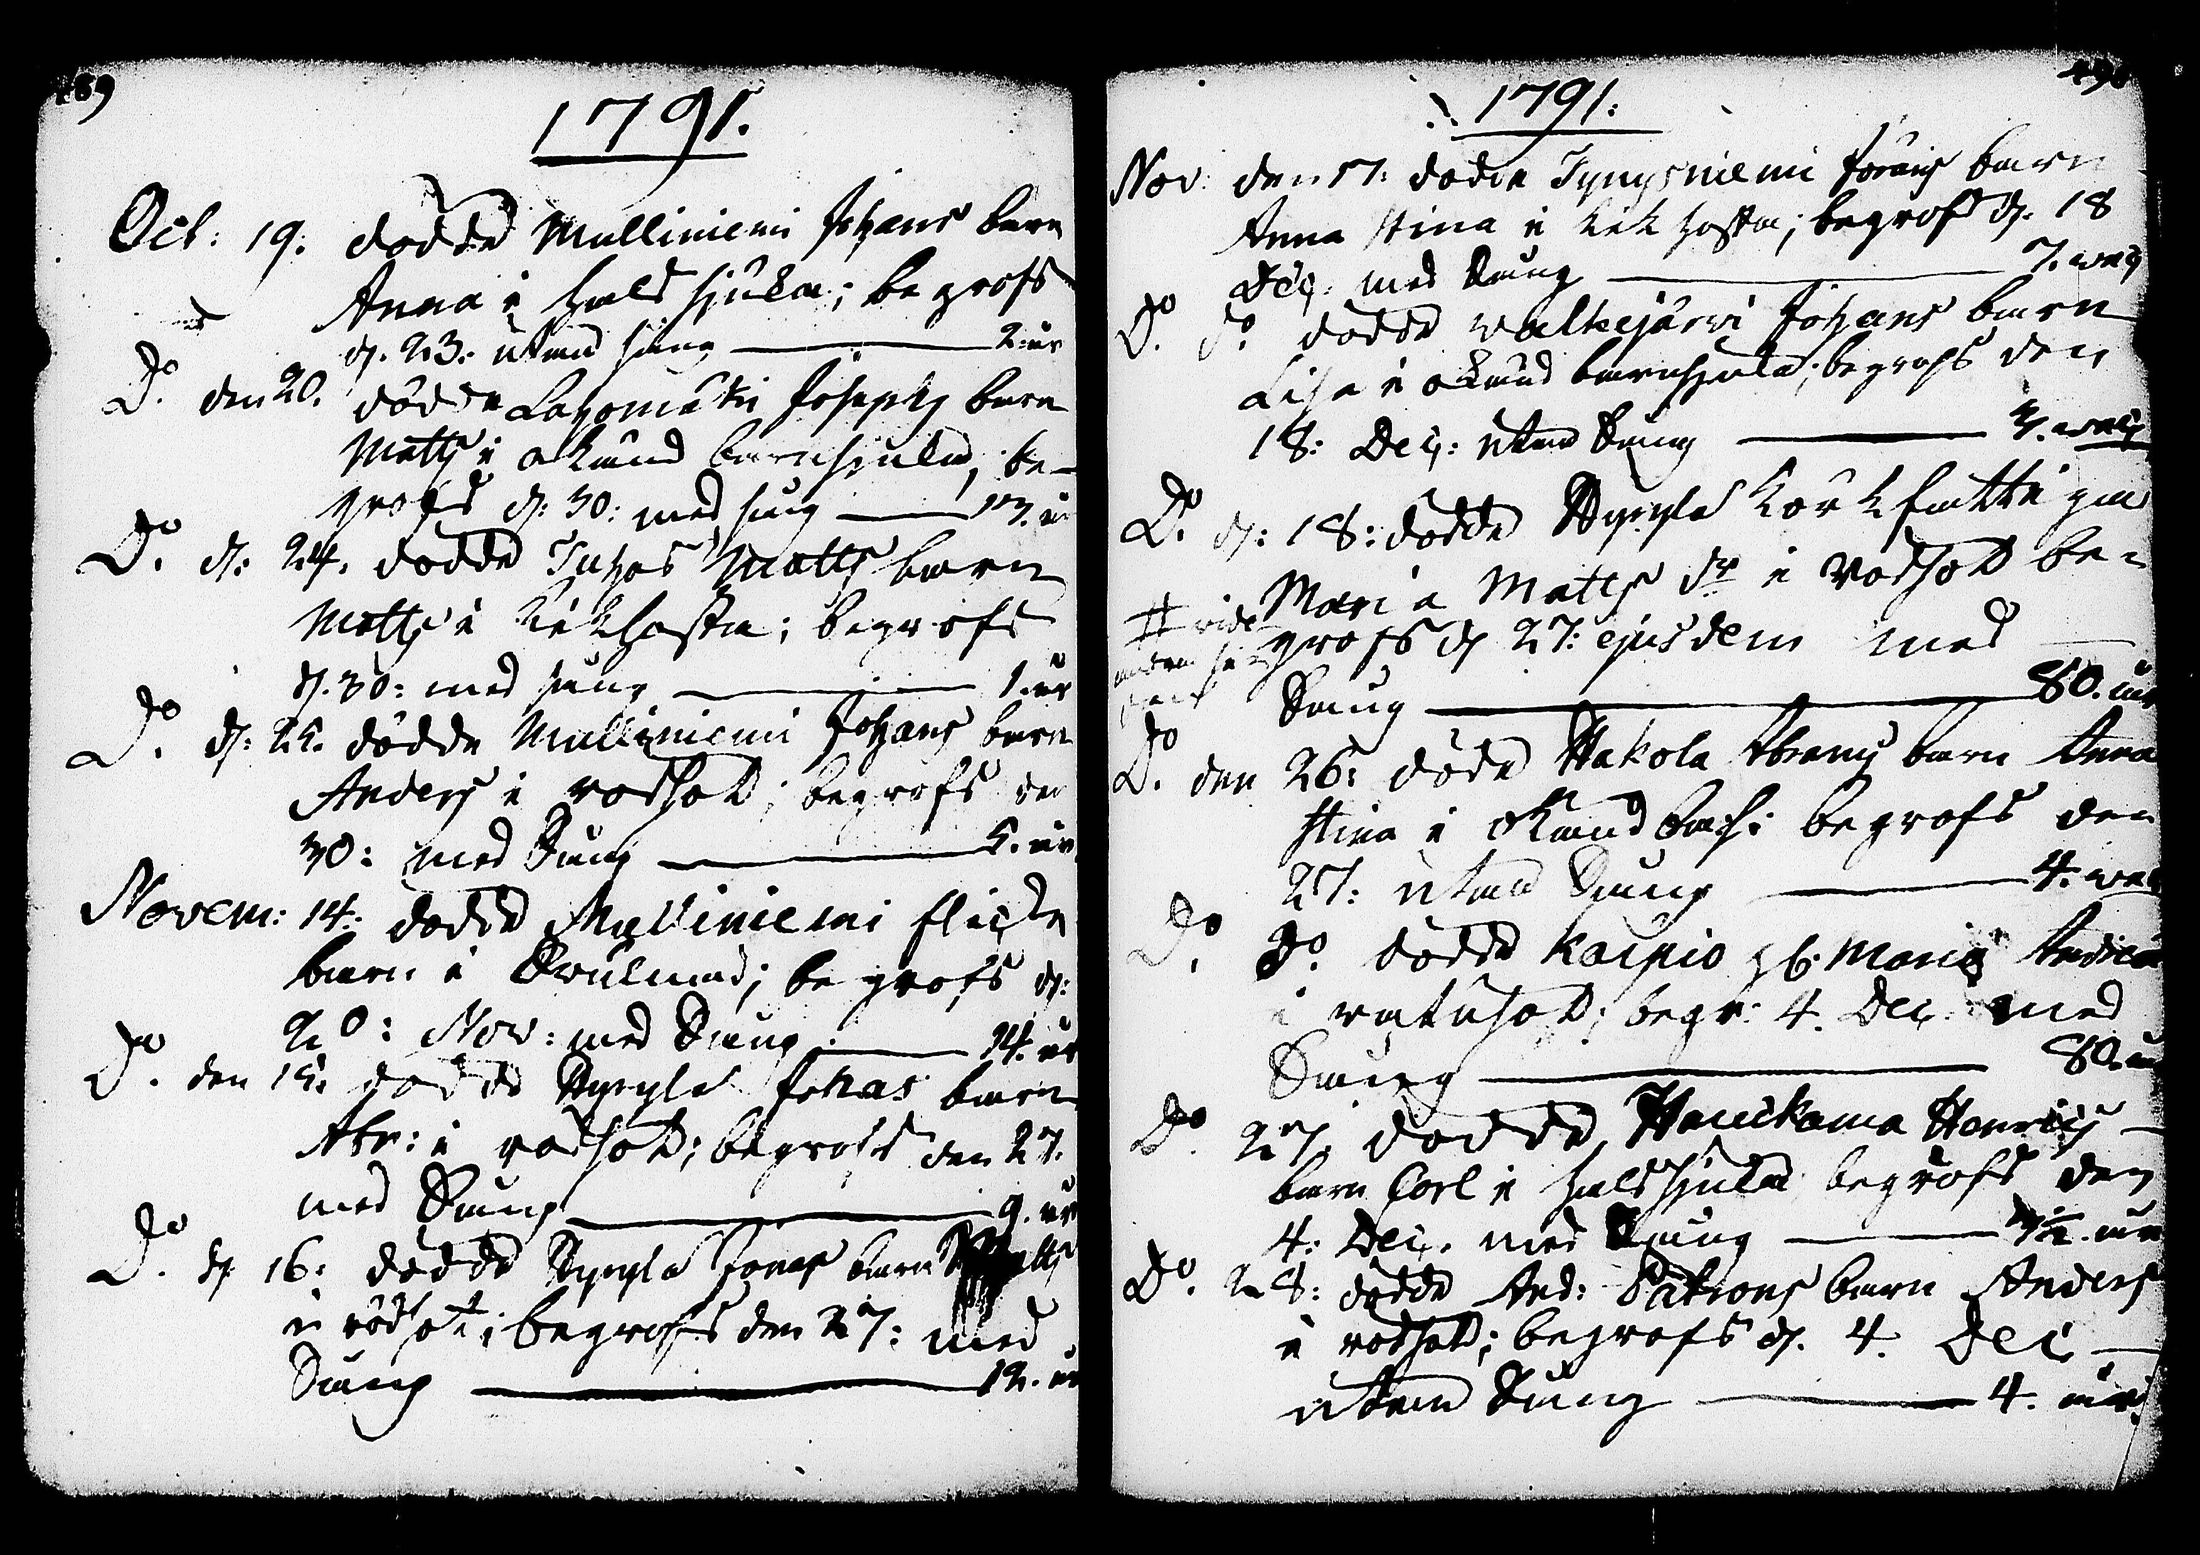 489
1791.
Oct: 19. dödde Mulliniemi Johans barn
Anna i halssjuka; begrofs
d. 23. utan sång 2. år
Do. den 20. dödde Lapomäki Josephs barn
Matts i okänd barnsjuka; be-
grofs d: 30: med sång
Do. d: 24. dödde Juhos Matts barn
Matts i kikhosta; begrofs
d. 30: med sång 1. år
Do. d: 25. dödde Mulliniemi Johans barn
Anders i rödsot; begrofs den
30: med Sång 5. år
Novem: 14: dödde Mulliniemi flicko
barn i ; begrofs d:
20: Nov: med Sång 14. år
Do. den 15. dödde Hyrylä Johas barn
Abr: i rödsot; begrofs den 27.
med Sång 9. år
Do. d. 16: dödde Hyrylä Jonas barn Matts
i rödsot; begrofs den 27: med
Sång 12. år
490
1791:
Nov: den 17: dödde Tynysniemi Jörans barn
Anna Stina i kikhosta; begrofs d. 18
Dec. med Sång 7. wek
Do. do. dödde Walkejärwi Johans barn
Lisa i okänd barnsjuka; begrofs den
18: Dec: utan Sång 3. wek
Do. d: 18: dödde Hyrylä
Maria Matts dr i rödsot be-
grofs d 27: ejusdem med
Sång 80. år
Do. den 26: dödde Hakola Abrams barn Anna
Stina i okänd barns: begrofs den
27: utan Sång 4. wek
Do. Do. dödde Karpio gb: Maria
i ; begr: 4. Dec. med
Sång 80. år
Do. 27. dödde Haukama Henrics
barn Carl i halssjuka begrofs den
4: Dec. med Sång 3½. år
Do. 28: dödde And: Påkrons barn Anders
i rödsot; begrofs d. 4. Dec
utan Sång 4. år